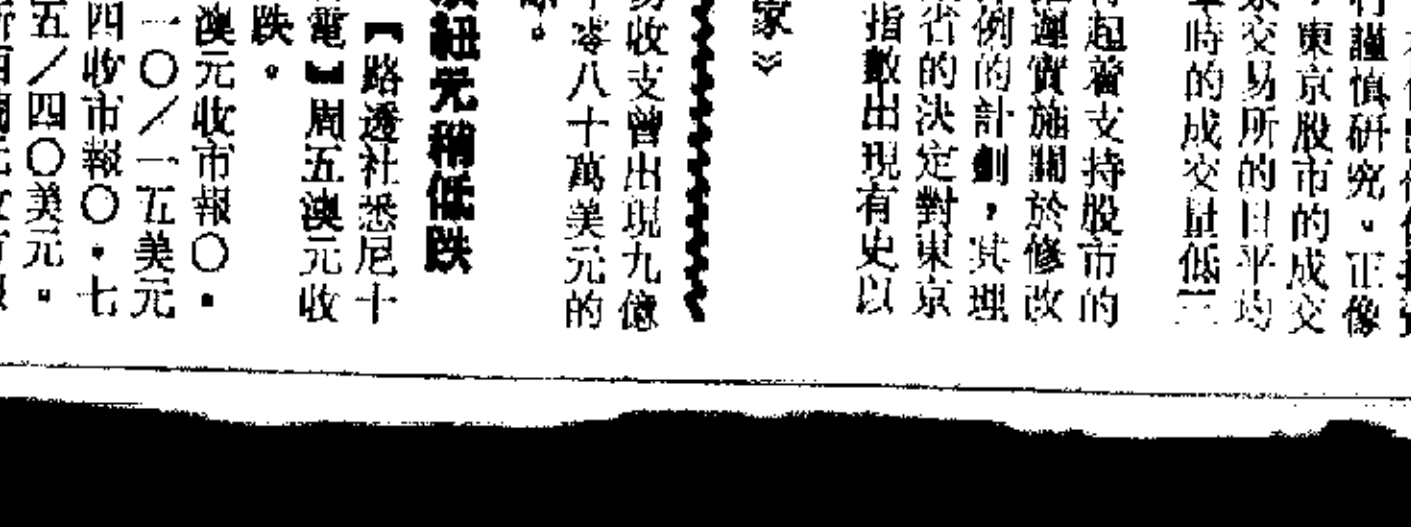 行謹慎研究。正像
東京股市的成交
京交易所的日平均
時的成交量低三
起着支持股市的
遲實施關於修改
例的計劃，其理
省的決定對東京
指數出現有史以
家》
易收支曾出現九億
零八十萬美元的
紐元稍低跌
【路透社悉尼十
電】周五澳元收
跌。
澳元收市報〇·
一〇／一五美元
四收市報〇·七
五／四〇美元。